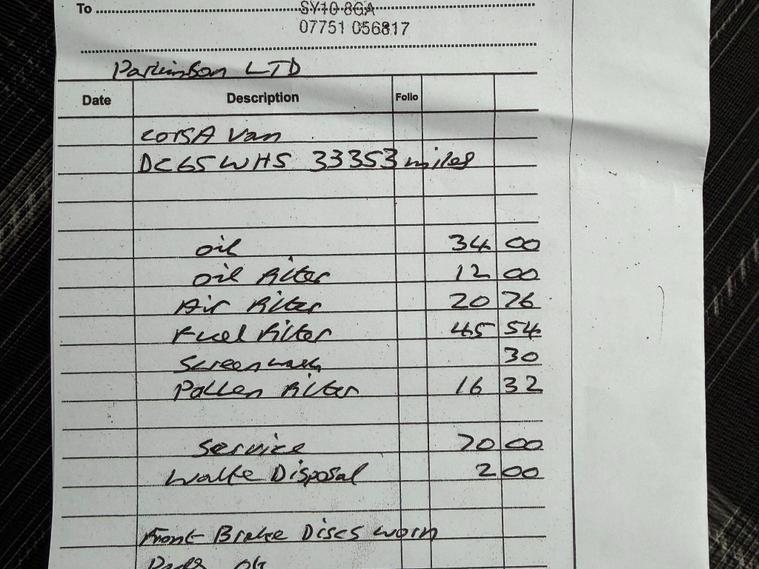 To SY10 8GA
07751 056817
Parkinson LTD
Date Description Folio
corsA Van
DC65WHS 33353 miles
oil 34 00
oil Filter 12 00
Air Filter 20 76
Fuel Filter 45 54
Screenwash 30
Pollen Filter 16 32
Service 70 00
Waste Disposal 2 00
Front Brake Discs worn
Pads ok